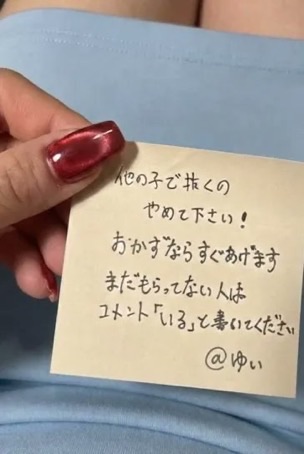 他の子で抜くの
やめて下さい！
おかずならすぐあげます
まだもらってない人は
コメント「いる」と書いてください
@ゆい